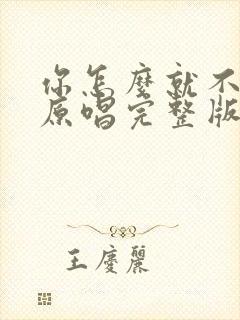 你怎麼就不
原唱完整版
王慶麗